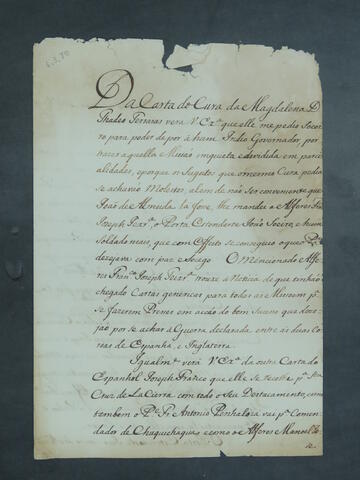 6,3,70
Da Carta do Cura da Magdalena D
Thadeo Terrasas verá V Ex.ª que elle me pedio Socor
ro para poder depôr á hum Indio Governador, por
trazer aquella Missão inquieta e dividida em parcia
lidades, e porque os Sugeitos que o mesmo Cura pedia
se achavão Molestos, alem de não ser conveniente que
João de Almeida lá fosse, lhe mandei o Alferes Fran.co
Joseph Teix.ª, o Porta Estendarte João Soeiro, e hum
Soldado mais, que com effeito se conseguio o que o P.e
dezejava com paz e Socego. O Mencionado Alfe
res Fran.co Joseph Teix.ª trouxe a Noticia de que tinhão
chegado Cartas genericas para todas as Missoens p.ª
se fazerem Preces em acção do bom Sucesso que dese
jão por se achar á Guerra declarada entre as duas Co
roas de Espanha, e Inglaterra.
Igualm.te verá V Ex.ª da outra Carta do
Espanhol Joseph Franco que elle se recolhe p.ª Santa
Cruz de La Cierra com todo o Seu Destacamento, como
tambem o P.e Fr. Antonio Penhaloza vai p.ª Comen
dador de Chuquichaqua e como o Alferes Manoel